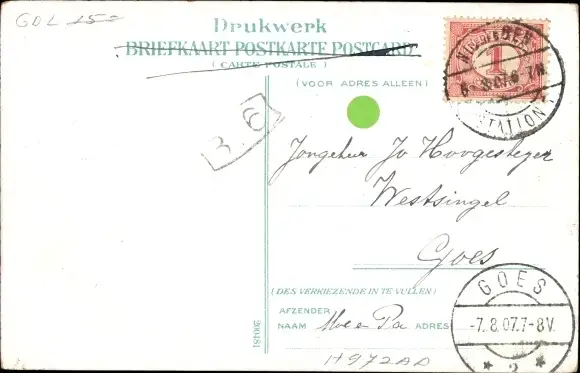 GOL 15=
Drukwerk
BRIEFKAART POSTKARTE POSTCARD
( CARTE POSTALE )
(VOOR ADRES ALLEEN)
1
STATION
3. 6
Jongeheer Jo Hoogesteger
Westsingel
Goes
(DES VERKIEZENDE IN TE VULLEN)
AFZENDER
NAAM Moe en Pa ADRES
200481
GOES
-7.8.07.7-8V.
* 2 *
H972AD